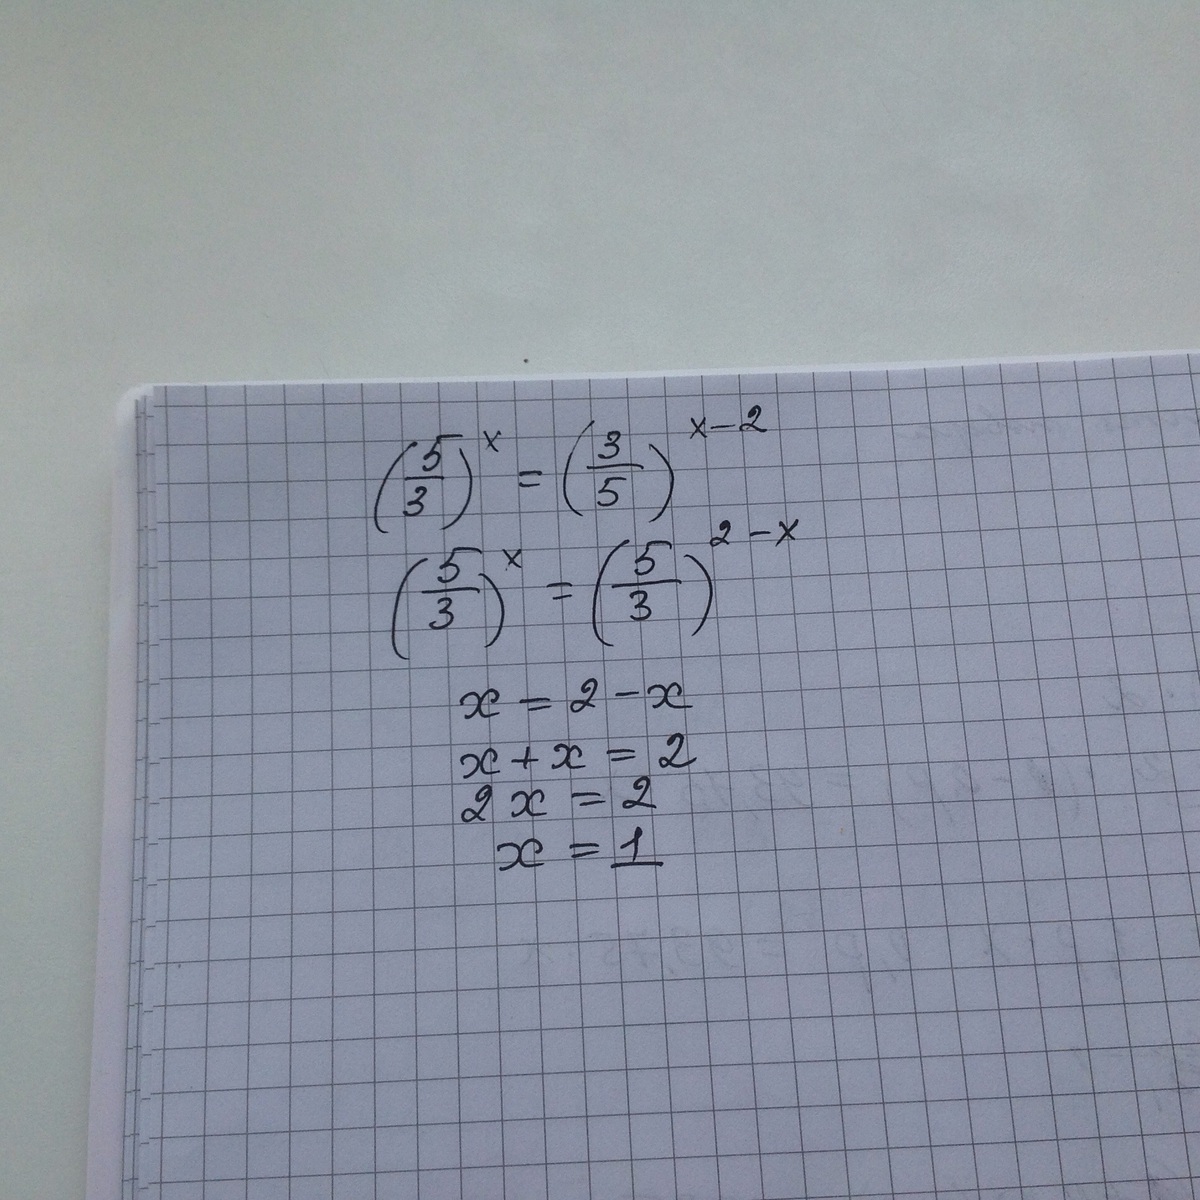 (5/3)^x = (3/5)^(x-2)
(5/3)^x = (5/3)^(2-x)
x = 2 - x
x + x = 2
2x = 2
x = 1